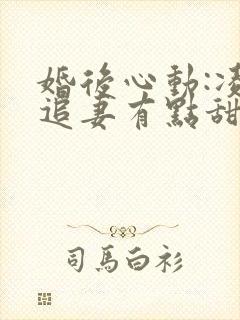 婚後心動:凌
追妻有點甜
司馬白衫